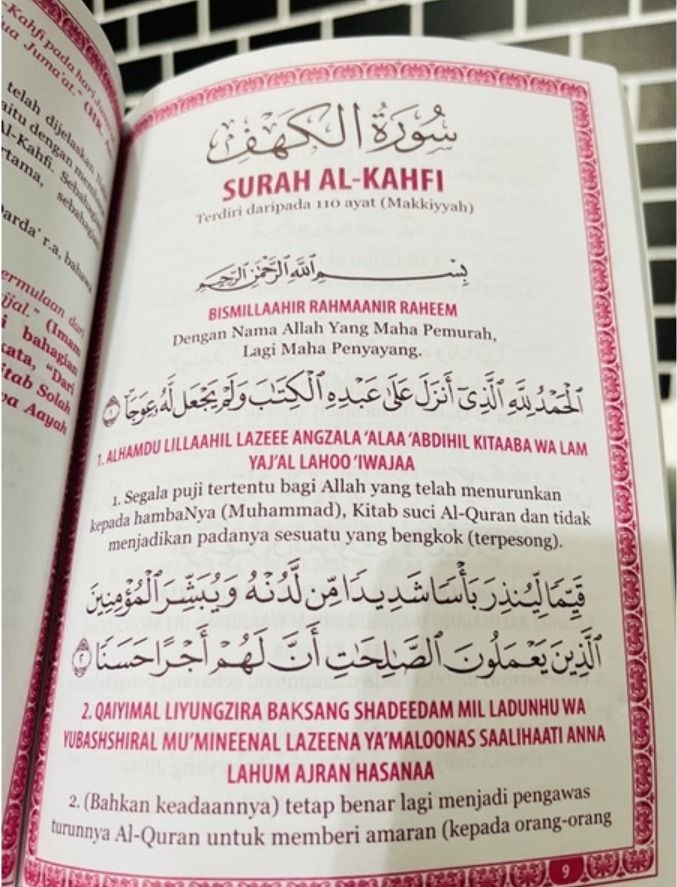 -Kahfi pada hari
ua Juma'at." (HR.
telah dijelaskan
aitu dengan
Al-Kahfi. Sebahagian
rtama, sebahagian
Darda' r.a, bahawa
ermulaan dari
jjal." (Imam
i bahagian
kata, "Dari
itab Solah
wa Aayah
سُورَةُ الكَهْفِ
SURAH AL-KAHFI
Terdiri daripada 110 ayat (Makkiyyah)
بِسْمِ اللَّهِ الرَّحْمَٰنِ الرَّحِيمِ
BISMILLAAHIR RAHMAANIR RAHEEM
Dengan Nama Allah Yang Maha Pemurah,
Lagi Maha Penyayang.
الْحَمْدُ لِلَّهِ الَّذِي أَنزَلَ عَلَىٰ عَبْدِهِ الْكِتَٰبَ وَلَمْ يَجْعَل لَّهُ عِوَجًا ١
1. ALHAMDU LILLAAHIL LAZEEE ANGZALA 'ALAA 'ABDIHIL KITAABA WA LAM
YAJ'AL LAHOO 'IWAJAA
1. Segala puji tertentu bagi Allah yang telah menurunkan
kepada hambaNya (Muhammad), Kitab suci Al-Quran dan tidak
menjadikan padanya sesuatu yang bengkok (terpesong).
قَيِّمًا لِّيُنذِرَ بَأْسًا شَدِيدًا مِّن لَّدُنْهُ وَيُبَشِّرَ الْمُؤْمِنِينَ
الَّذِينَ يَعْمَلُونَ الصَّٰلِحَٰتِ أَنَّ لَهُمْ أَجْرًا حَسَنًا ٢
2. QAIYIMAL LIYUNGZIRA BAKSANG SHADEEDAM MIL LADUNHU WA
YUBASHSHIRAL MU'MINEENAL LAZEENA YA'MALOONAS SAALIHAATI ANNA
LAHUM AJRAN HASANAA
2. (Bahkan keadaannya) tetap benar lagi menjadi pengawas
turunnya Al-Quran untuk memberi amaran (kepada orang-orang
9